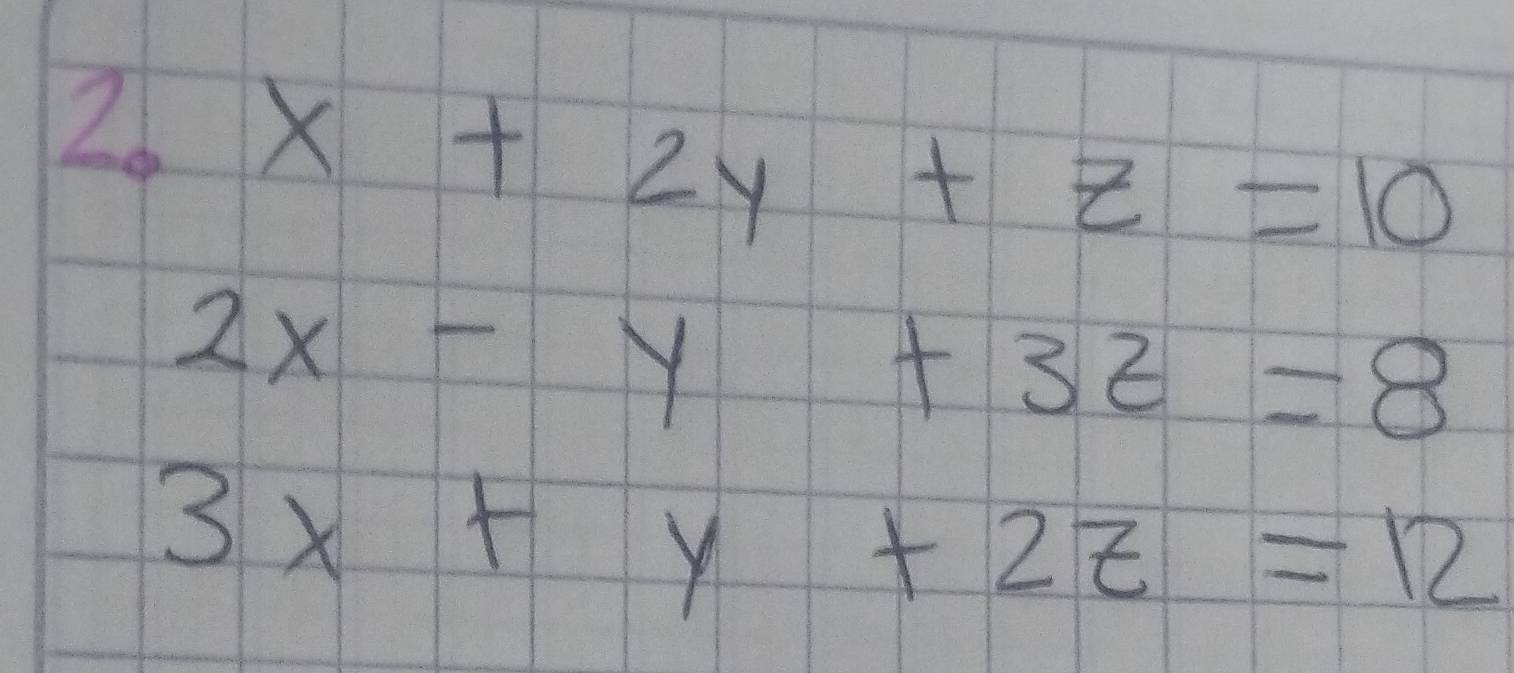 2. x + 2y + z = 10
2x - y + 3z = 8
3x + y + 2z = 12